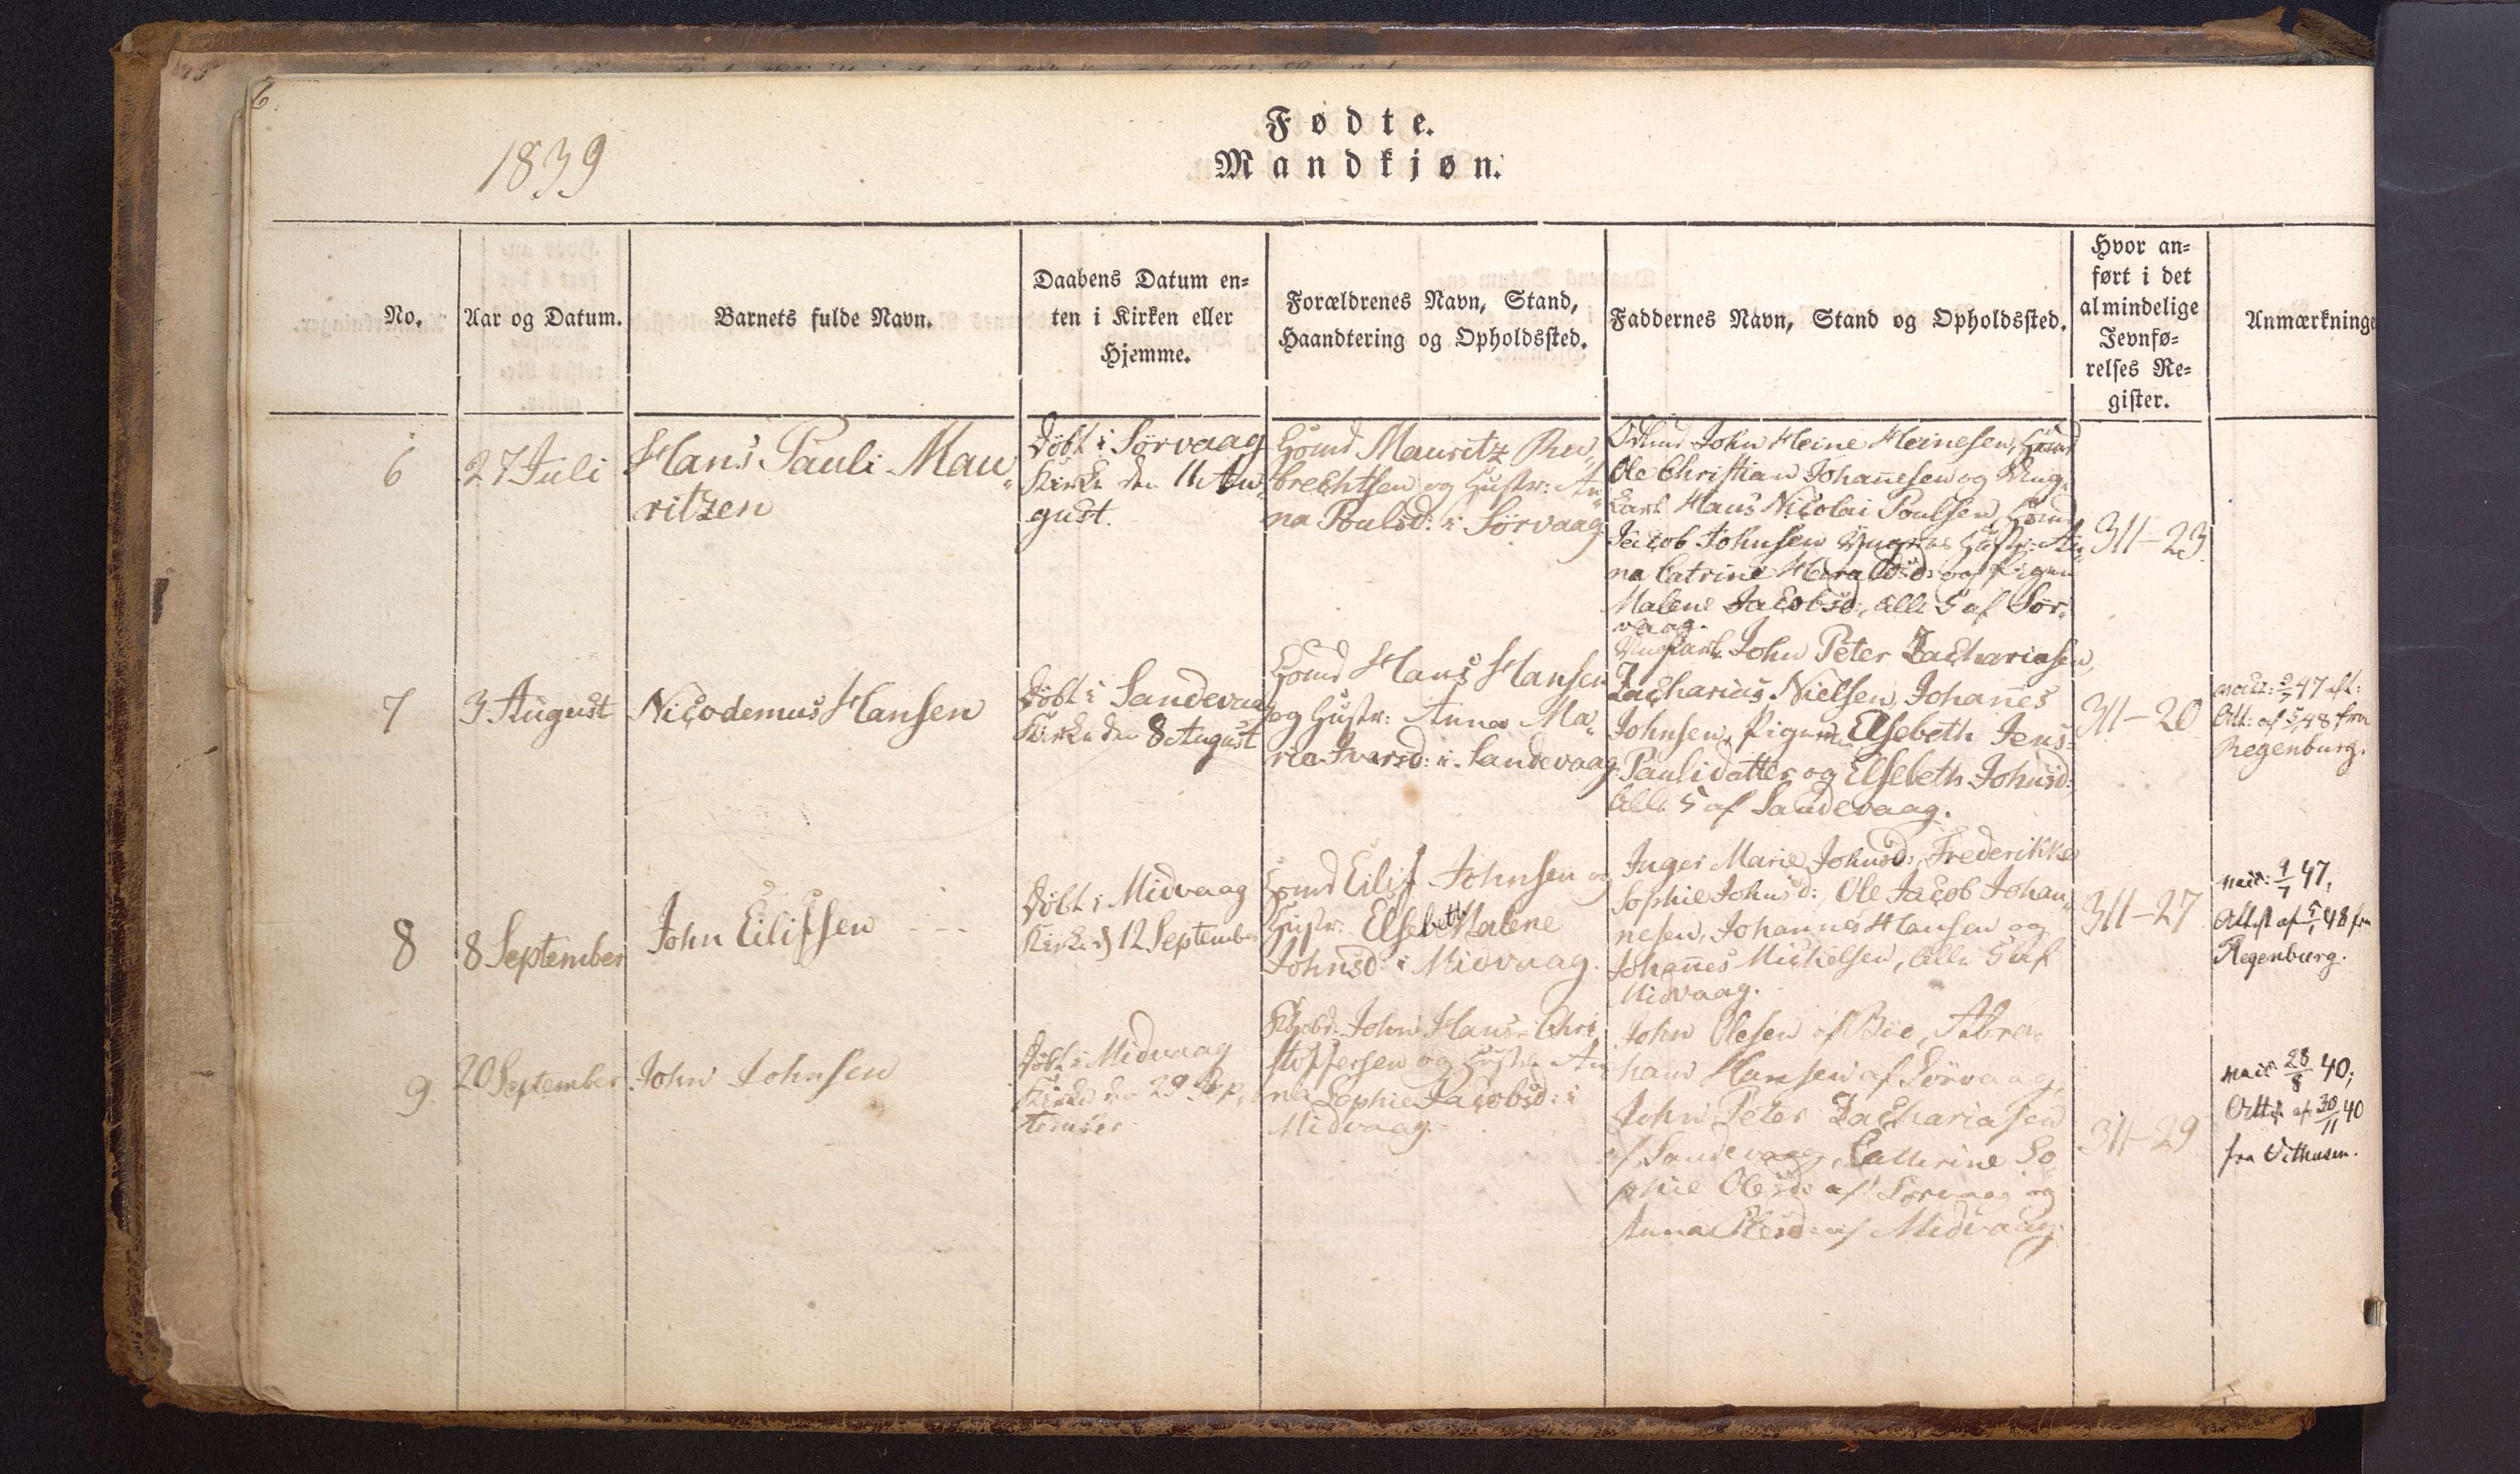 6.
1839
Fødte.
Mandkjøn.
No.
Aar og Datum.
Barnets fulde Navn.
Daabens Datum en=
ten i Kirken eller
Hjemme.
Forældrenes Navn, Stand,
Haandtering og Opholdssted.
Faddernes Navn, Stand og Opholdssted.
Hvor an=
ført i det
almindelige
Jevnfø=
relses Re=
gister.
Anmærkninge
6
27 Juli
Hans Pauli Mau„
ritzen
Døbt i Sørvaag
Kirke den 11 Au„
gust.
Huusmd Mauritz
brechtsen og Hustr: An„
na Poulsd: i Sørvaag.
John Heine Heinesen,
Ole Christian Johannesen og Ung„
karl Hans Nicolai Poulsen,
Jacob Johnsen Hustr: An„
na Catrine Heraldsd: og Pigen
Malene Jacobsd:, alle 5 af Sør„
vaag.
311-23
7
3 August
Nicodemus Hansen
Døbt i Sandevaag
Kirke den 8 August
Huusmd Hans Hansen
og Hustr: Anna Ma„
ria Ivarsd: i Sandevaag.
Ungkarl John Peter Zachariasen,
Zacharias Nielsen, Johannes
Johnsen, Pigerne Elsebeth Jens=
Paulidatter og Elsebeth Johnsd:
alle 5 af Sandevaag.
311-20
47
Att: af 48 fra
Regenburg.
8
8 September
John Eilifsen
Døbt i Midvaag
Kirke d 12 September
Huusmd Eilif Johnsen og
Hustr: Elsebeth Malene
Johnsd: i Midvaag.
Inger Marie Johnsd:, Frederikke
Sophie Johnsd:, Ole Jacob Johan„
nesen, Johannes Hansen og
Johannes Michelsen, alle 5 af
Midvaag.
311-27
47,
Attest af 48 fra
Regenburg.
9
20 September
John Johnsen
Døbt i Midvaag
Kirke den 29 Sep„
tember
John Hans Chri
stoffersen og Hustr: An
na Sophie Jacobsd: i
Midvaag.
John Olesen af Bøe, Abra„
ham Hansen af Sørvaag,
John Peter Zachariasen
af Sandevaag, Cathrine So
phie Olesd: af Sørvaag og
Anna Olesd: af Midvaag.
311-29
28/8 40;
Attest af 30/11 40
fra